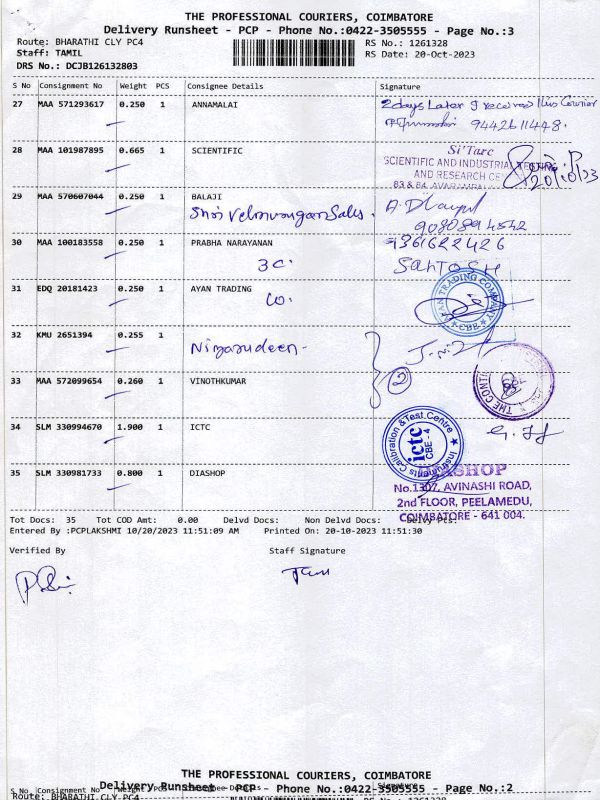 THE PROFESSIONAL COURIERS, COIMBATORE
Delivery Runsheet - PCP - Phone No.:0422-3505555 - Page No.:3
Route: BHARATHI CLY PC4
RS No.: 1261328
Staff: TAMIL
RS Date: 20-Oct-2023
DRS No.: DCJB126132803
S No Consignment No Weight PCS Consignee Details Signature
27 MAA 571293617 0.250 1 ANNAMALAI 2days Later I received this Courier
9442611448.
28 MAA 101987895 0.665 1 SCIENTIFIC
Si'Tarc
SCIENTIFIC AND INDUSTRIAL TESTING
AND RESEARCH CE
83 & 84, AVARAMPAL
20/10/23
29 MAA 570607044 0.250 1 BALAJI
Shri Velmurugan Sales.
9080894542
30 MAA 100183558 0.250 1 PRABHA NARAYANAN 9361622426
3C.
SANTOSH
31 EDQ 20181423 0.250 1 AYAN TRADING
Co.
AYAN TRADING COMPANY
CBE
32 KMU 2651394 0.255 1
Nizamudeen
2
33 MAA 572099654 0.260 1 VINOTHKUMAR
THE CONTI
34 SLM 330994670 1.900 1 ICTC
Instruments Calibration & Test Centre
ictc
CBE - 4
35 SLM 330981733 0.800 1 DIASHOP
DIASHOP
No.1307, AVINASHI ROAD,
2nd FLOOR, PEELAMEDU,
COIMBATORE - 641 004.
Tot Docs: 35 Tot COD Amt: 0.00 Delvd Docs: Non Delvd Docs: Delvy Pct:
Entered By :PCPLAKSHMI 10/20/2023 11:51:09 AM Printed On: 20-10-2023 11:51:30
Verified By Staff Signature
THE PROFESSIONAL COURIERS, COIMBATORE
Delivery Runsheet - PCP - Phone No.:0422-3505555 - Page No.:2
S No Consignment No Weight PCS Consignee Details Signature
Route: BHARATHI CLY PC4
1261328